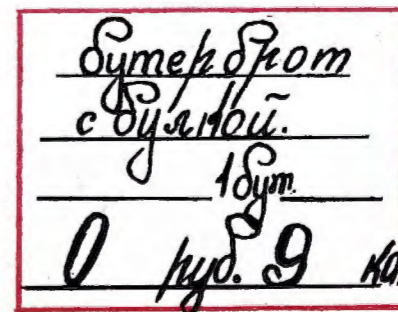 бутерброт
с булкой.
1 бут.
0 руб. 9 ко